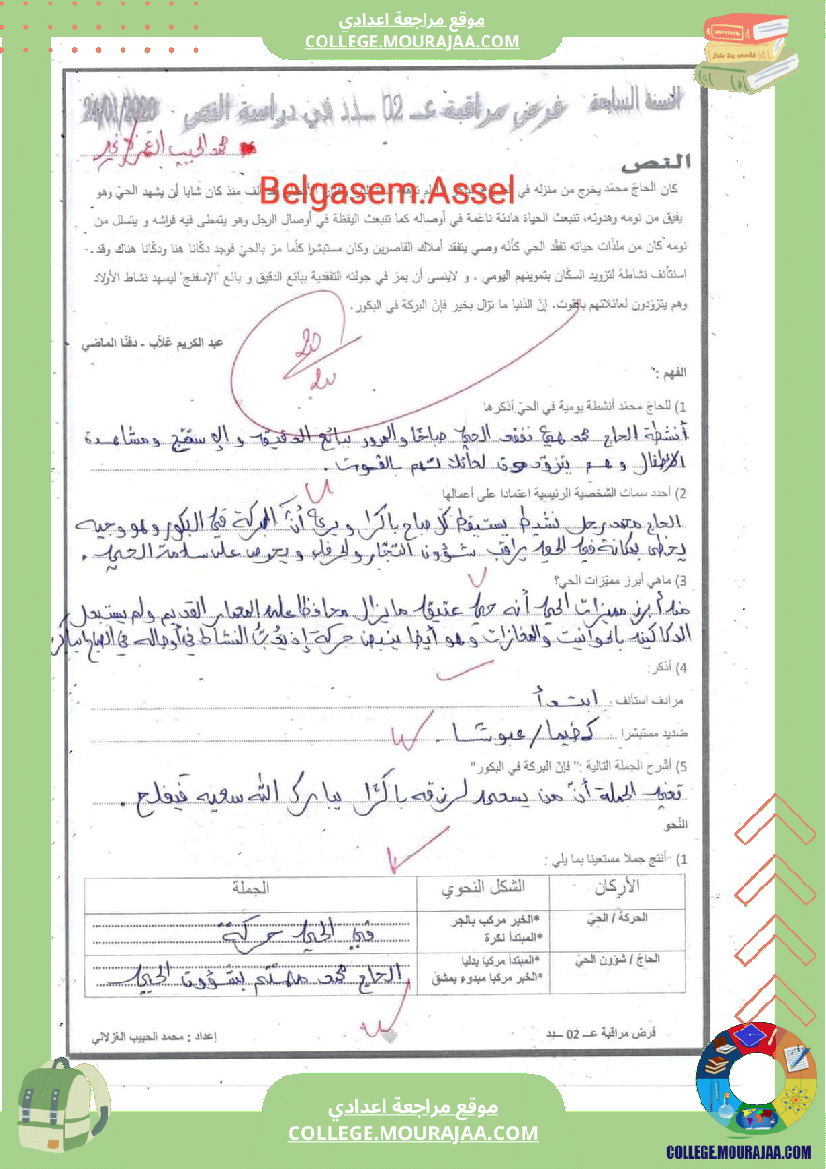 موقع مراجعة اعدادي
COLLEGE.MOURAJAA.COM
السنة السابعة فرض مراقبة عـ 02 ـدد في دراسة النص 24/01/2020
محمد الحبيب الغزلاني
النص
Belgasem.Assel
كان الحاجّ محمّد يخرج من منزله في منذ كان شابا لن يشهد الحيّ وهو
يفيق من نومه وهدوئه، تنبعث الحياة هادئة ناعمة في أوصاله كما تنبعث اليقظة في أوصال الرجل وهو يتمطى فيه فراشه و يتسلل من
نومه كان من ملذّات حياته تفقّد الحي كأنّه وصي يتفقد أملاك القاصرين وكان مستبشرا كلّما مرّ بالحيّ فوجد دكّانا هنا ودكّانا هناك وقد
استئانف نشاطة لتزويد السكّان بتموينهم اليومي . و لاينسى أن يمرّ في جولته التفقدية ببائع الدقيق و بائع "الإسفنج" ليسهد نشاط الأولاد
وهم يتزوّدون لعائلاتهم بالقوت. إنّ الدّنيا ما تزال بخير فإنّ البركة في البكور.
عبد الكريم غلاب - دفنّا الماضي
20
20
الفهم :
1) للحاجّ محمّد أنشطة يومية في الحيّ أذكرها
أنشطة الحاج محمد هي تفقد الحيّ صباحًا والمرور ببائع الدقيق و الإسفنج ومشاهدة
الأطفال وهم يتزودون لعائلاتهم بالقوت.
2) أحدد سمات الشخصية الرئيسية اعتمادا على أعمالها
الحاج محمد رجل نشيط يستيقظ كل صباح باكرًا ويرى أنّ البركة في البكور وهو وجيه
يحظى بمكانة في الحي يراقب شؤون التجّار والحرفاء ويحرص على سلامة الحيّ.
3) ماهي أبرز مميّزات الحي؟
من أبرز مميزات الحيّ أنه حيّ عتيق ما يزال محافظا على المعمار القديم ولم يستبدل
الدكاكين بالحوانيت والمغازات وهو أيضا ينبض حركة إذ يدبّ النشاط في أوصاله في الصباح الباكر
4) أذكر:
مرادف استأنف : ابتدأ
ضديد مستبشرا : كئيبا / عبوسا.
5) أشرح الجملة التالية :" فإنّ البركة في البكور"
تعني الجملة أنّ من يسعى لرزقه باكرًا يبارك الله سعيه فيفلح.
النّحو
1) -أنتج جملا مستعينا بما يلي :
الأركان الشكل النحوي الجملة
الحركة / الحيّ *الخبر مركب بالجر
*المبتدأ نكرة
في الحيّ حركة
الحاجّ / شؤون الحيّ *المبتدأ مركبا بدليا
*الخبر مركبا مبدوء بمشقّ
الحاج محمد مهتم بشؤون الحيّ
فرض مراقبة عـ 02 ـدد إعداد : محمد الحبيب الغزلاني
موقع مراجعة اعدادي
COLLEGE.MOURAJAA.COM
COLLEGE.MOURAJAA.COM